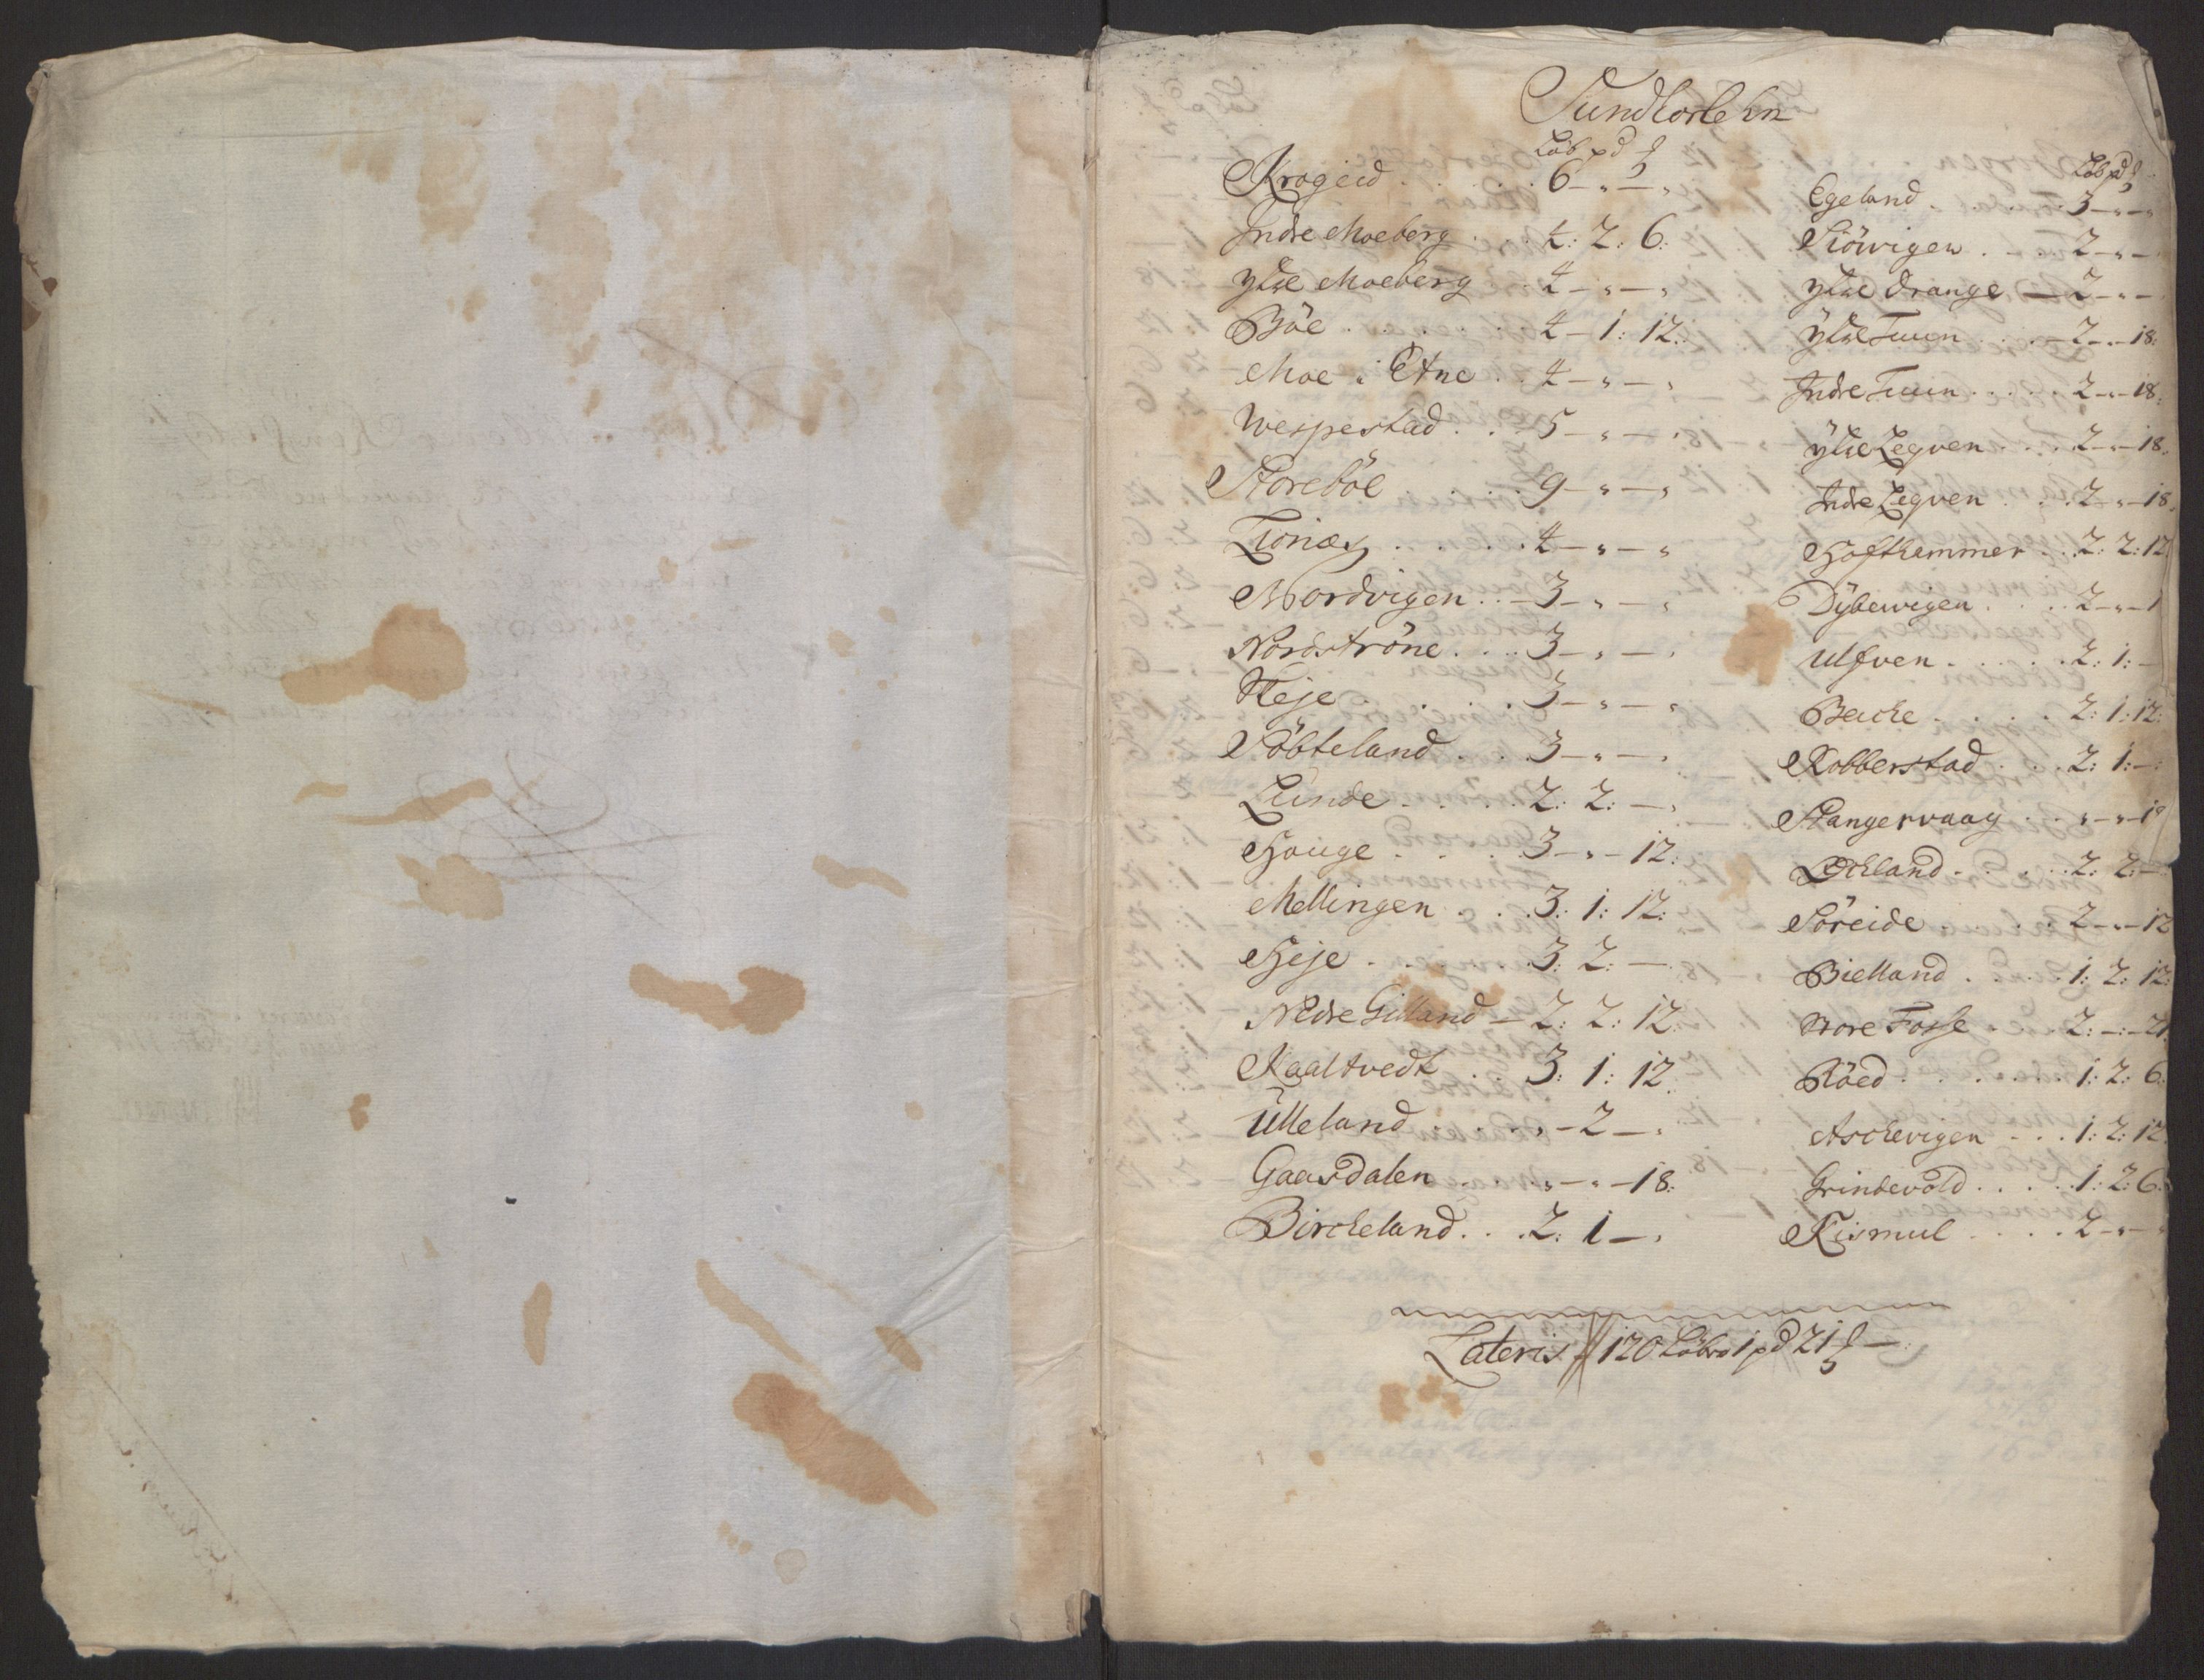 Sundhorlehn
Löb pd ℔
Krogeid . . . . . 6 - „ - „
Indre Moeberg . . . 4: 2: 6:
ytre Moeberg . 4 - „ - „
Böe . . . . . . 4 - 1: 12:
Moe i Etne . . 4 - „ - „
Wespestad . . . 5 - „ - „
Storeböe . . . . . 9 - „ - „
Tionæs . . . . . 4 - „ - „
Nordvigen . . - 3 - „ - „
Nordströne . . . . 3 - „ - „
Steje . . . . . 3 - „ - „
Söbteland . . . 3 - „ - „
Lunde . . . . . 2: 2: - „
Houge . . . . 3 - „ - 12:
Mellingen . . . 3: 1: 12:
Heje . . . . . 3: 2: -
Nedre Gilland - 2: 2: 12:
Kaaltvedt . . 3: 1: 12
Ulleland . . . . . „ - 2 - „
Gaasdalen . . . . „ - „ - 18:
Birckeland . . . 2: 1 - „
Löb pd ℔
Egeland . . . . . . 3 - „ - „
Siövigen . . . . 2 - „ -
ytre Drange - 2 - „ -
ytre Tuen . . . - 2 - „ - 18:
Indre Tuen . . . . . 2 - „ - 18:
ytre Legven . . . . 2 - „ - 18.
Indre Legven . . . 2 - „ - 18.
Hofthammer . . 2: 2: 12
Dybevigen . . . . 2 - „ - 1
Ulfven . . . . . . 2: 1: -
Backe . . . . . 2: 1: 12:
Robberstad . . . 2: 1: -
Stangervaag . . „ - „ - 18
Lockland . . . . . 2: 2: -
Söreide . . . . . . 2 - „ - 12
Bielland . . . . . 1: 2: 12:
Store Fosse . . . . 2: - : - 21
Röed . . . . . . . 1: 2: 6:
Aschevigen . . . 1: 2: 12
Grindevold . . . . . 1: 2: 6.
Kismul . . . . . 2 - „ -
Lateris // 120 Löber 1 pd 21 ℔ - :